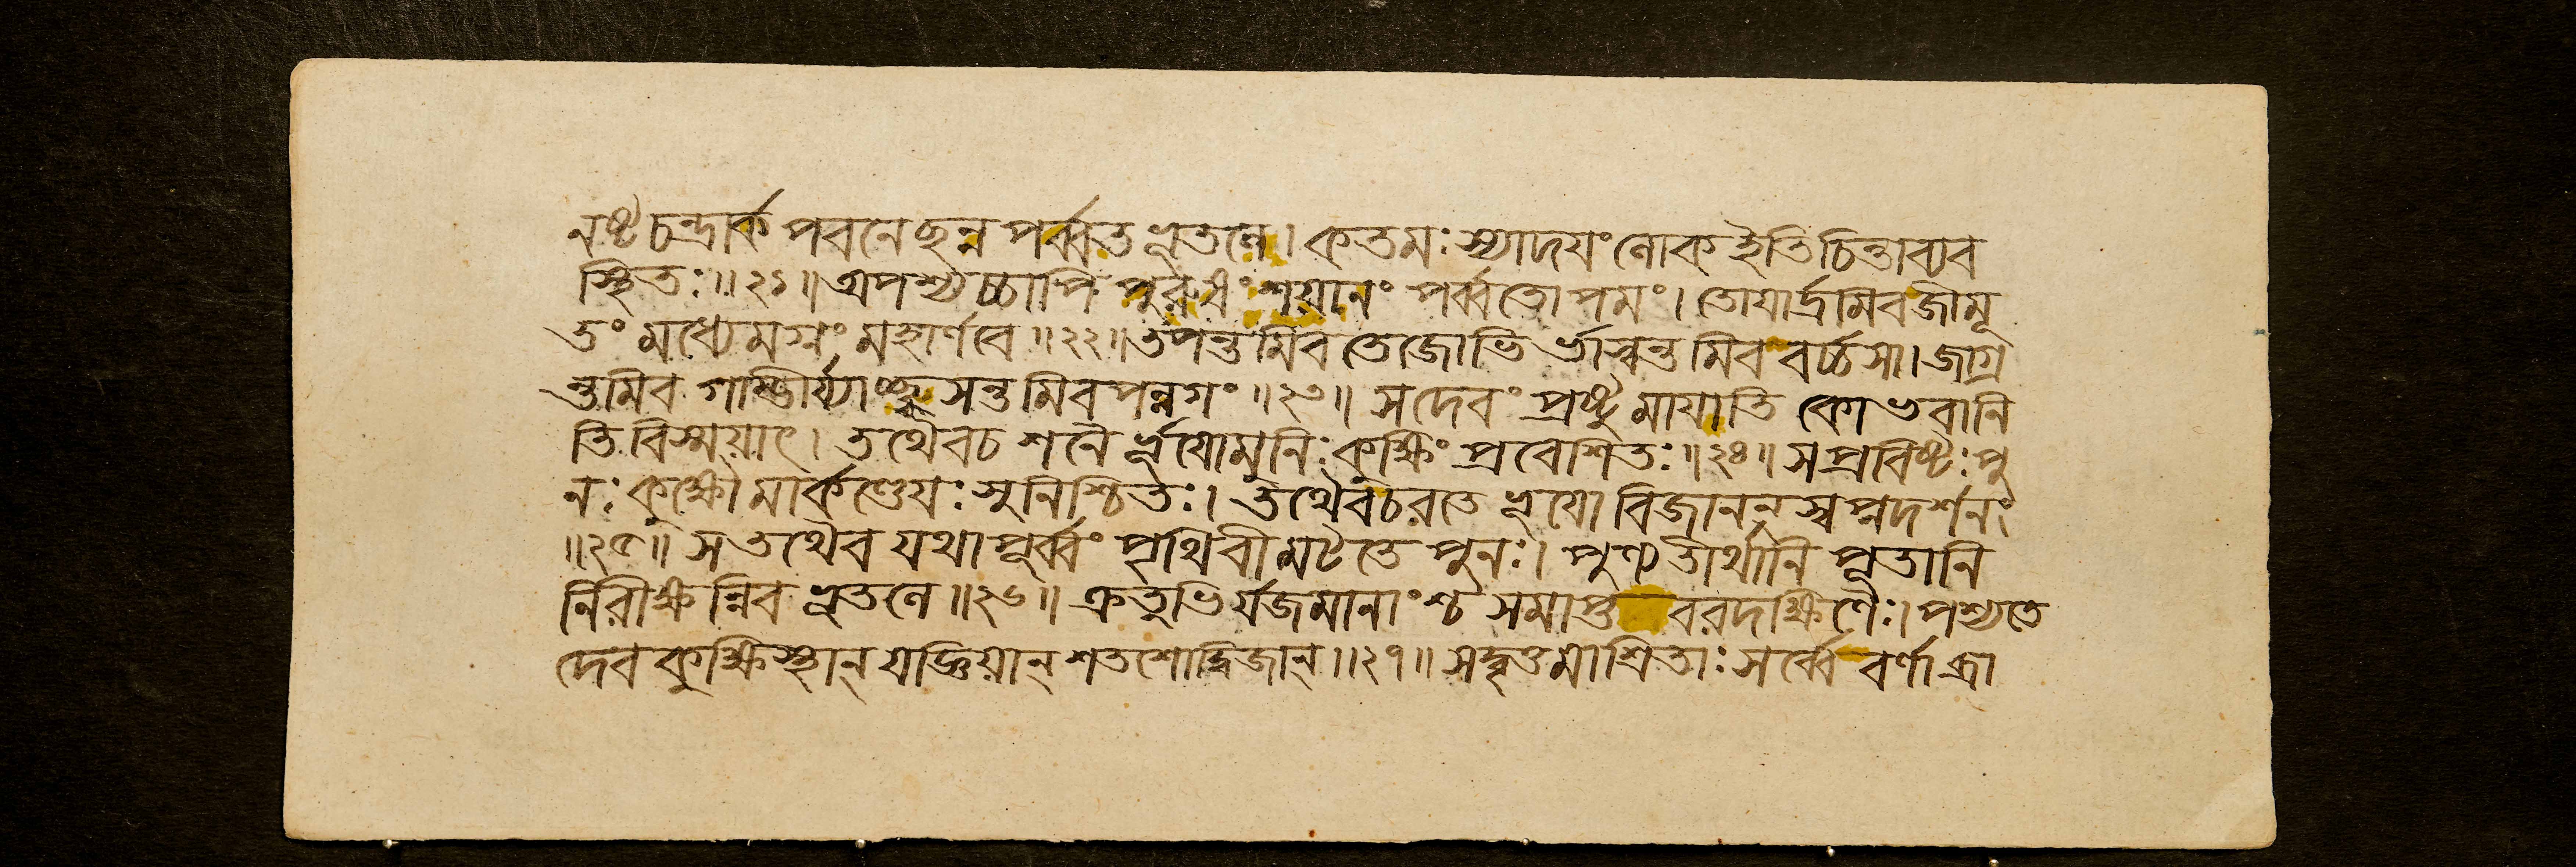 নষ্টচন্দ্রার্কপবনেছন্নপর্ব্বতভূতলে। কতমঃস্যাদযংলোকইতিচিন্তাব্যব
স্থিতঃ॥২১॥অপশ্যচ্চাপিপুরুষংশয়ানংপর্ব্বতোপমং। তোযার্দ্রমিবজীমূ
তংমধ্যেমগ্নংমহার্ণবে॥২২॥তপন্তমিবতেজোভির্ভাস্বন্তমিববর্চ্চসা।জাগ্র
ন্তমিবগাম্ভীর্য্যাচ্ছ্বসন্তমিবপন্নগং॥২৩॥ সদেবংপ্রষ্টুমাযাতিকোভবানি
তিবিস্ময়াৎ। তথৈবচশনৈর্ভূযোমুনিঃকুক্ষিংপ্রবেশিতঃ॥২৪॥সপ্রবিষ্টঃপু
নঃকুক্ষৌমার্কণ্ডেযঃসুনিশ্চিতঃ। তথৈবচরতেভূযোবিজানন্স্বপ্নদর্শনং
॥২৫॥ সতথৈবযথাপূর্ব্বংপৃথিবীমটতেপুনঃ। পুণ্যতীর্থানিপূতানি
নিরীক্ষন্নিবভূতলে॥২৬॥ ক্রতুভির্যজমানাংশ্চসমাপ্তবরদক্ষিণৈঃ।পশ্যতে
দেবকুক্ষিস্থান্যজ্ঞিয়ান্শতশোদ্বিজান্॥২৭॥সদ্বৃত্তমাশ্রিতাঃসর্ব্বেবর্ণাব্রা